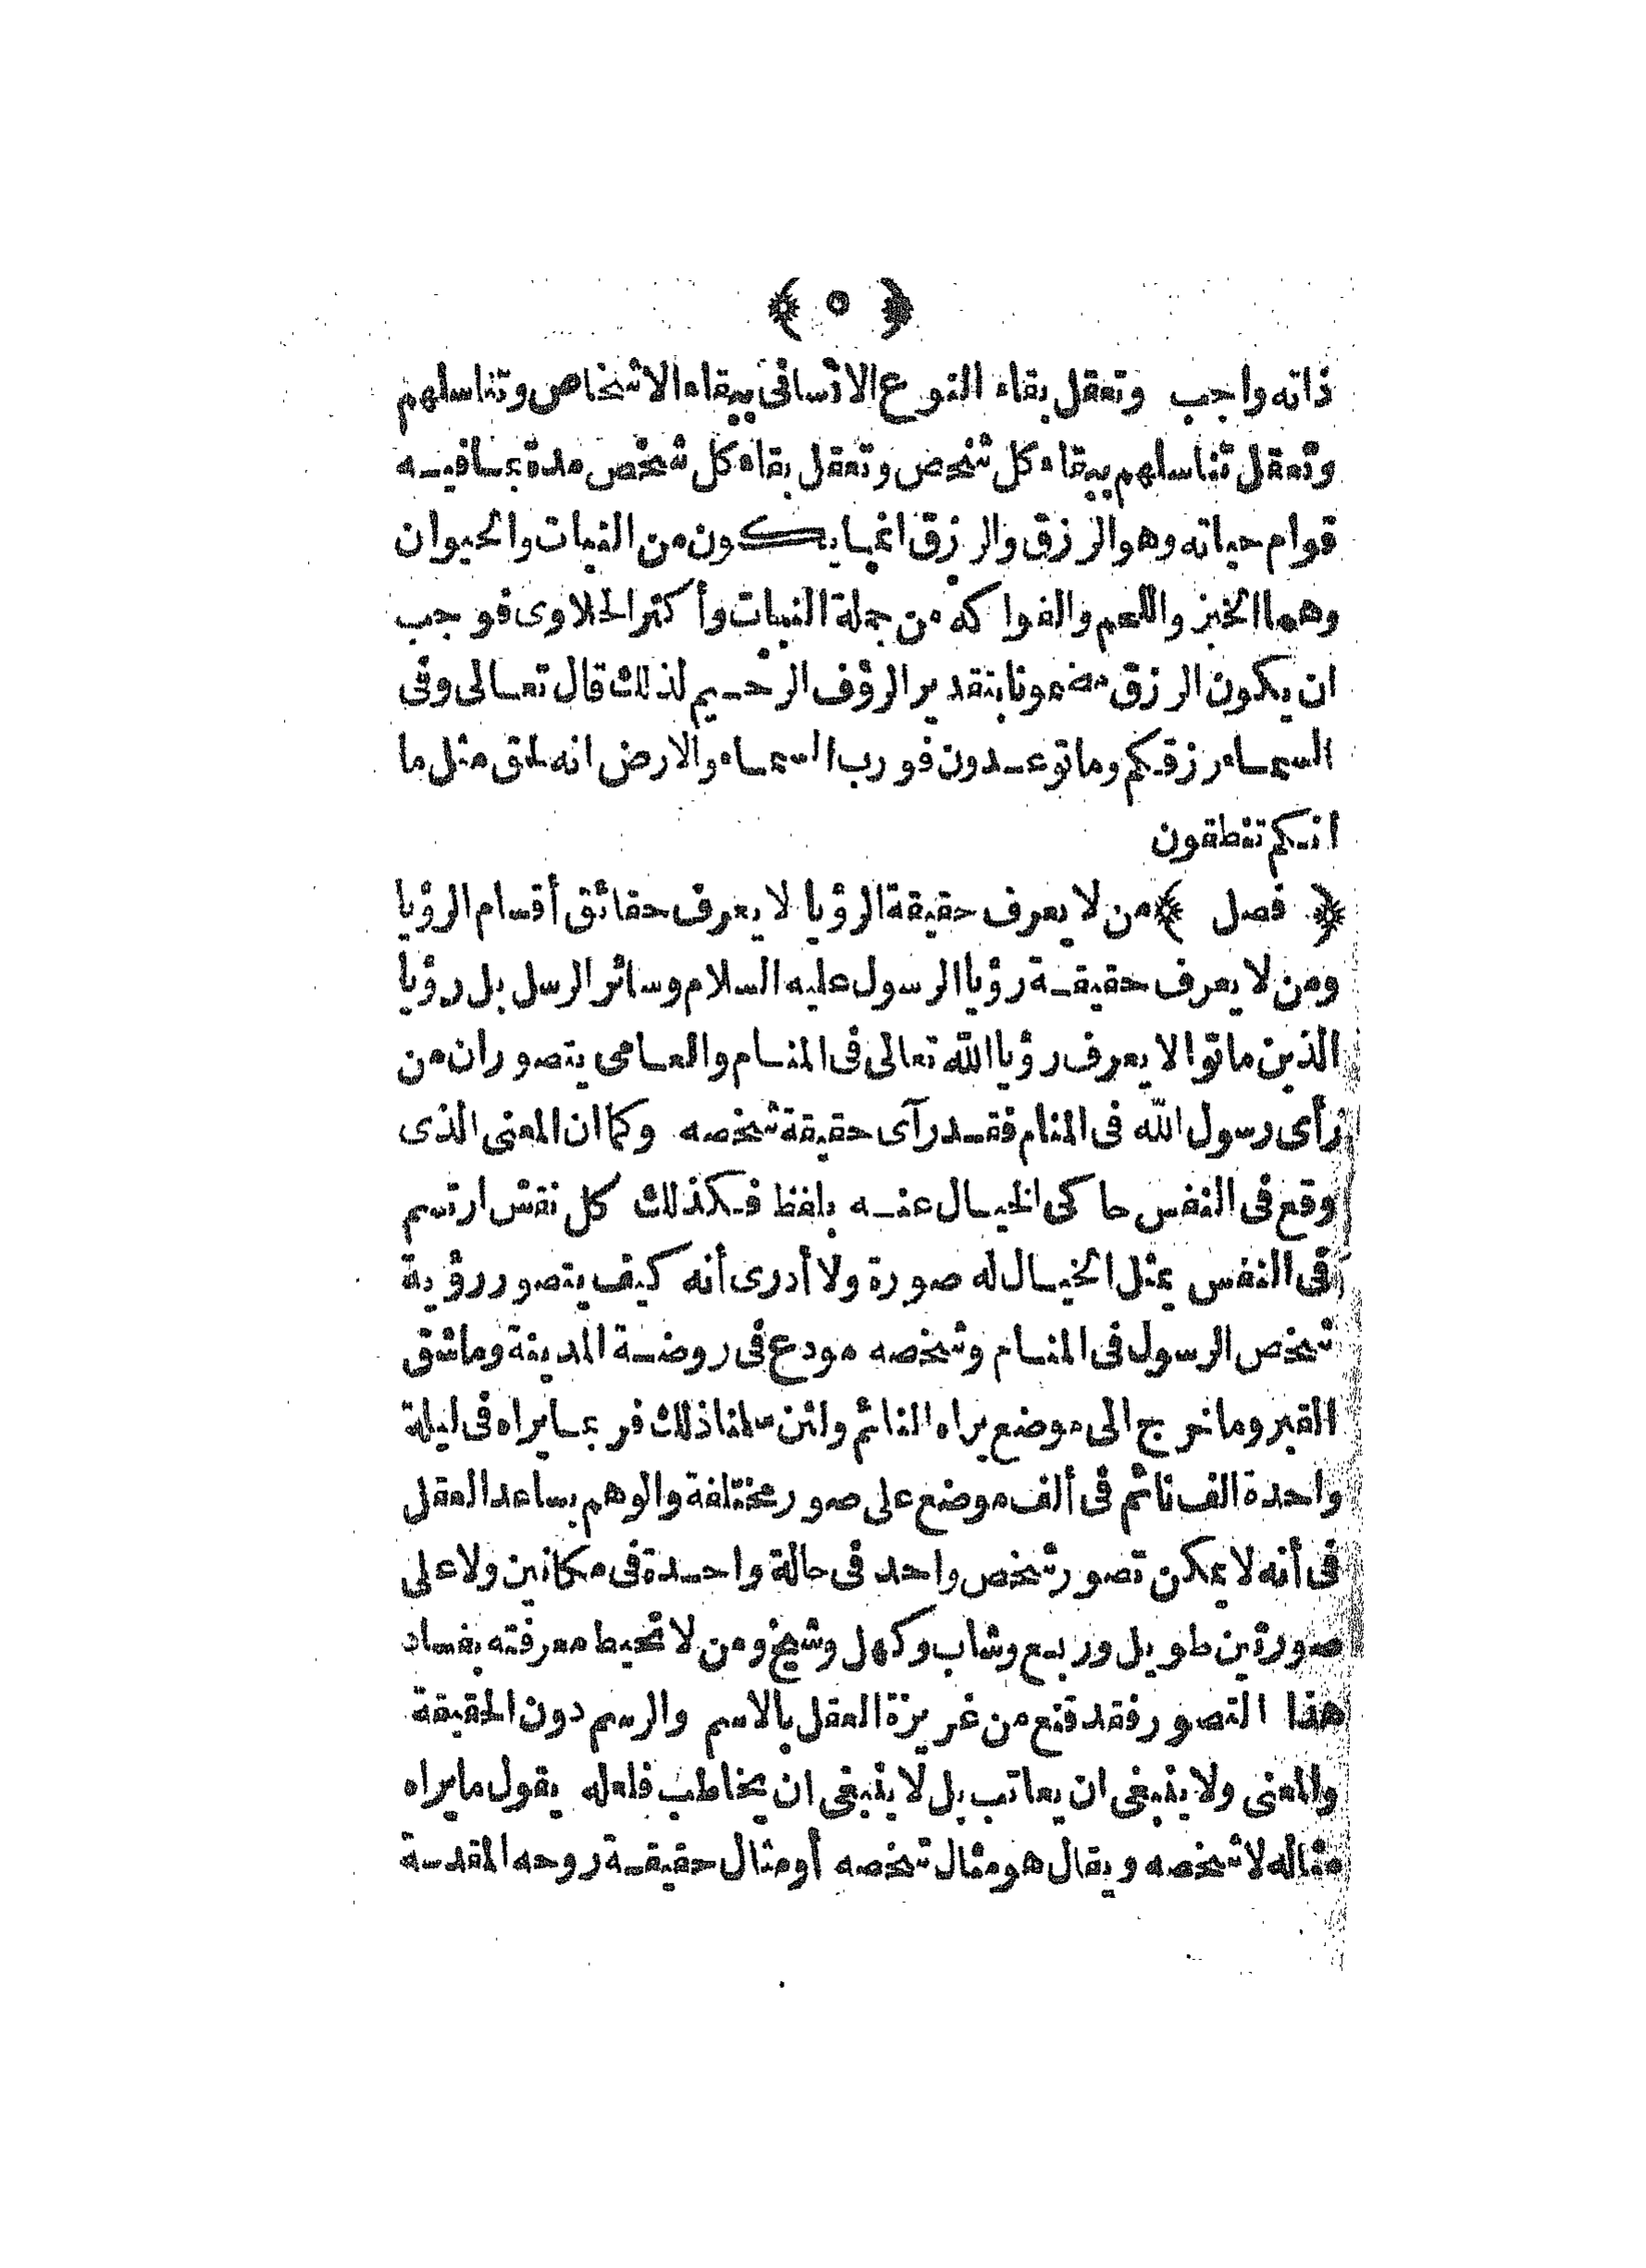 ﴿ ٥ ﴾
ذاته واجب وتعقل بقاء النوع الانسانى ببقاء الاشخاص وتناسلهم
وتعقل تناسلهم ببقاء كل شخص وتعقل بقاء كل شخص مدة بما فيه
قوام حياته وهو الرزق والرزق انما يكون من النبات والحيوان
وهما الخبز واللحم والفواكه من جملة النبات وأكثر الحلاوى فوجب
ان يكون الرزق مضمونا بتقدير الرؤف الرحيم لذلك قال تعالى وفى
السماء رزقكم وما توعدون فورب السماء والارض انه لحق مثل ما
انكم تنطقون
﴿ فصل ﴾ من لا يعرف حقيقة الرؤيا لا يعرف حقائق أقسام الرؤيا
ومن لا يعرف حقيقة رؤيا الرسول عليه السلام وسائر الرسل بل رؤيا
الذين ماتوا لا يعرف رؤيا الله تعالى فى المنام والعامى يتصور ان من
رأى رسول الله فى المنام فقد رآى حقيقة شخصه وكما ان المعنى الذى
وقع فى النفس حاكى الخيال عنه بلفظ فكذلك كل نقش ارتسم
فى النفس يمثل الخيال له صورة ولا أدرى أنه كيف يتصور رؤية
شخص الرسول فى المنام وشخصه مودع فى روضة المدينة وما شق
القبر وما خرج الى موضع يراه النائم ولئن سلمنا ذلك فربما يراه فى ليلة
واحدة الف نائم فى ألف موضع على صور مختلفة والوهم يساعد العقل
فى أنه لا يمكن تصور شخص واحد فى حالة واحدة فى مكانين ولا على
صورتين طويل وربع وشاب وكهل وشيخ ومن لا تحيط معرفته بفساد
هذا التصور فقد قنع من غريزة العقل بالاسم والرسم دون الحقيقة
والمعنى ولا ينبغى ان يعاتب بل لا ينبغى ان يخاطب فلعله يقول ما يراه
مثاله لا شخصه ويقال هو مثال شخصه أو مثال حقيقة روحه المقدسة